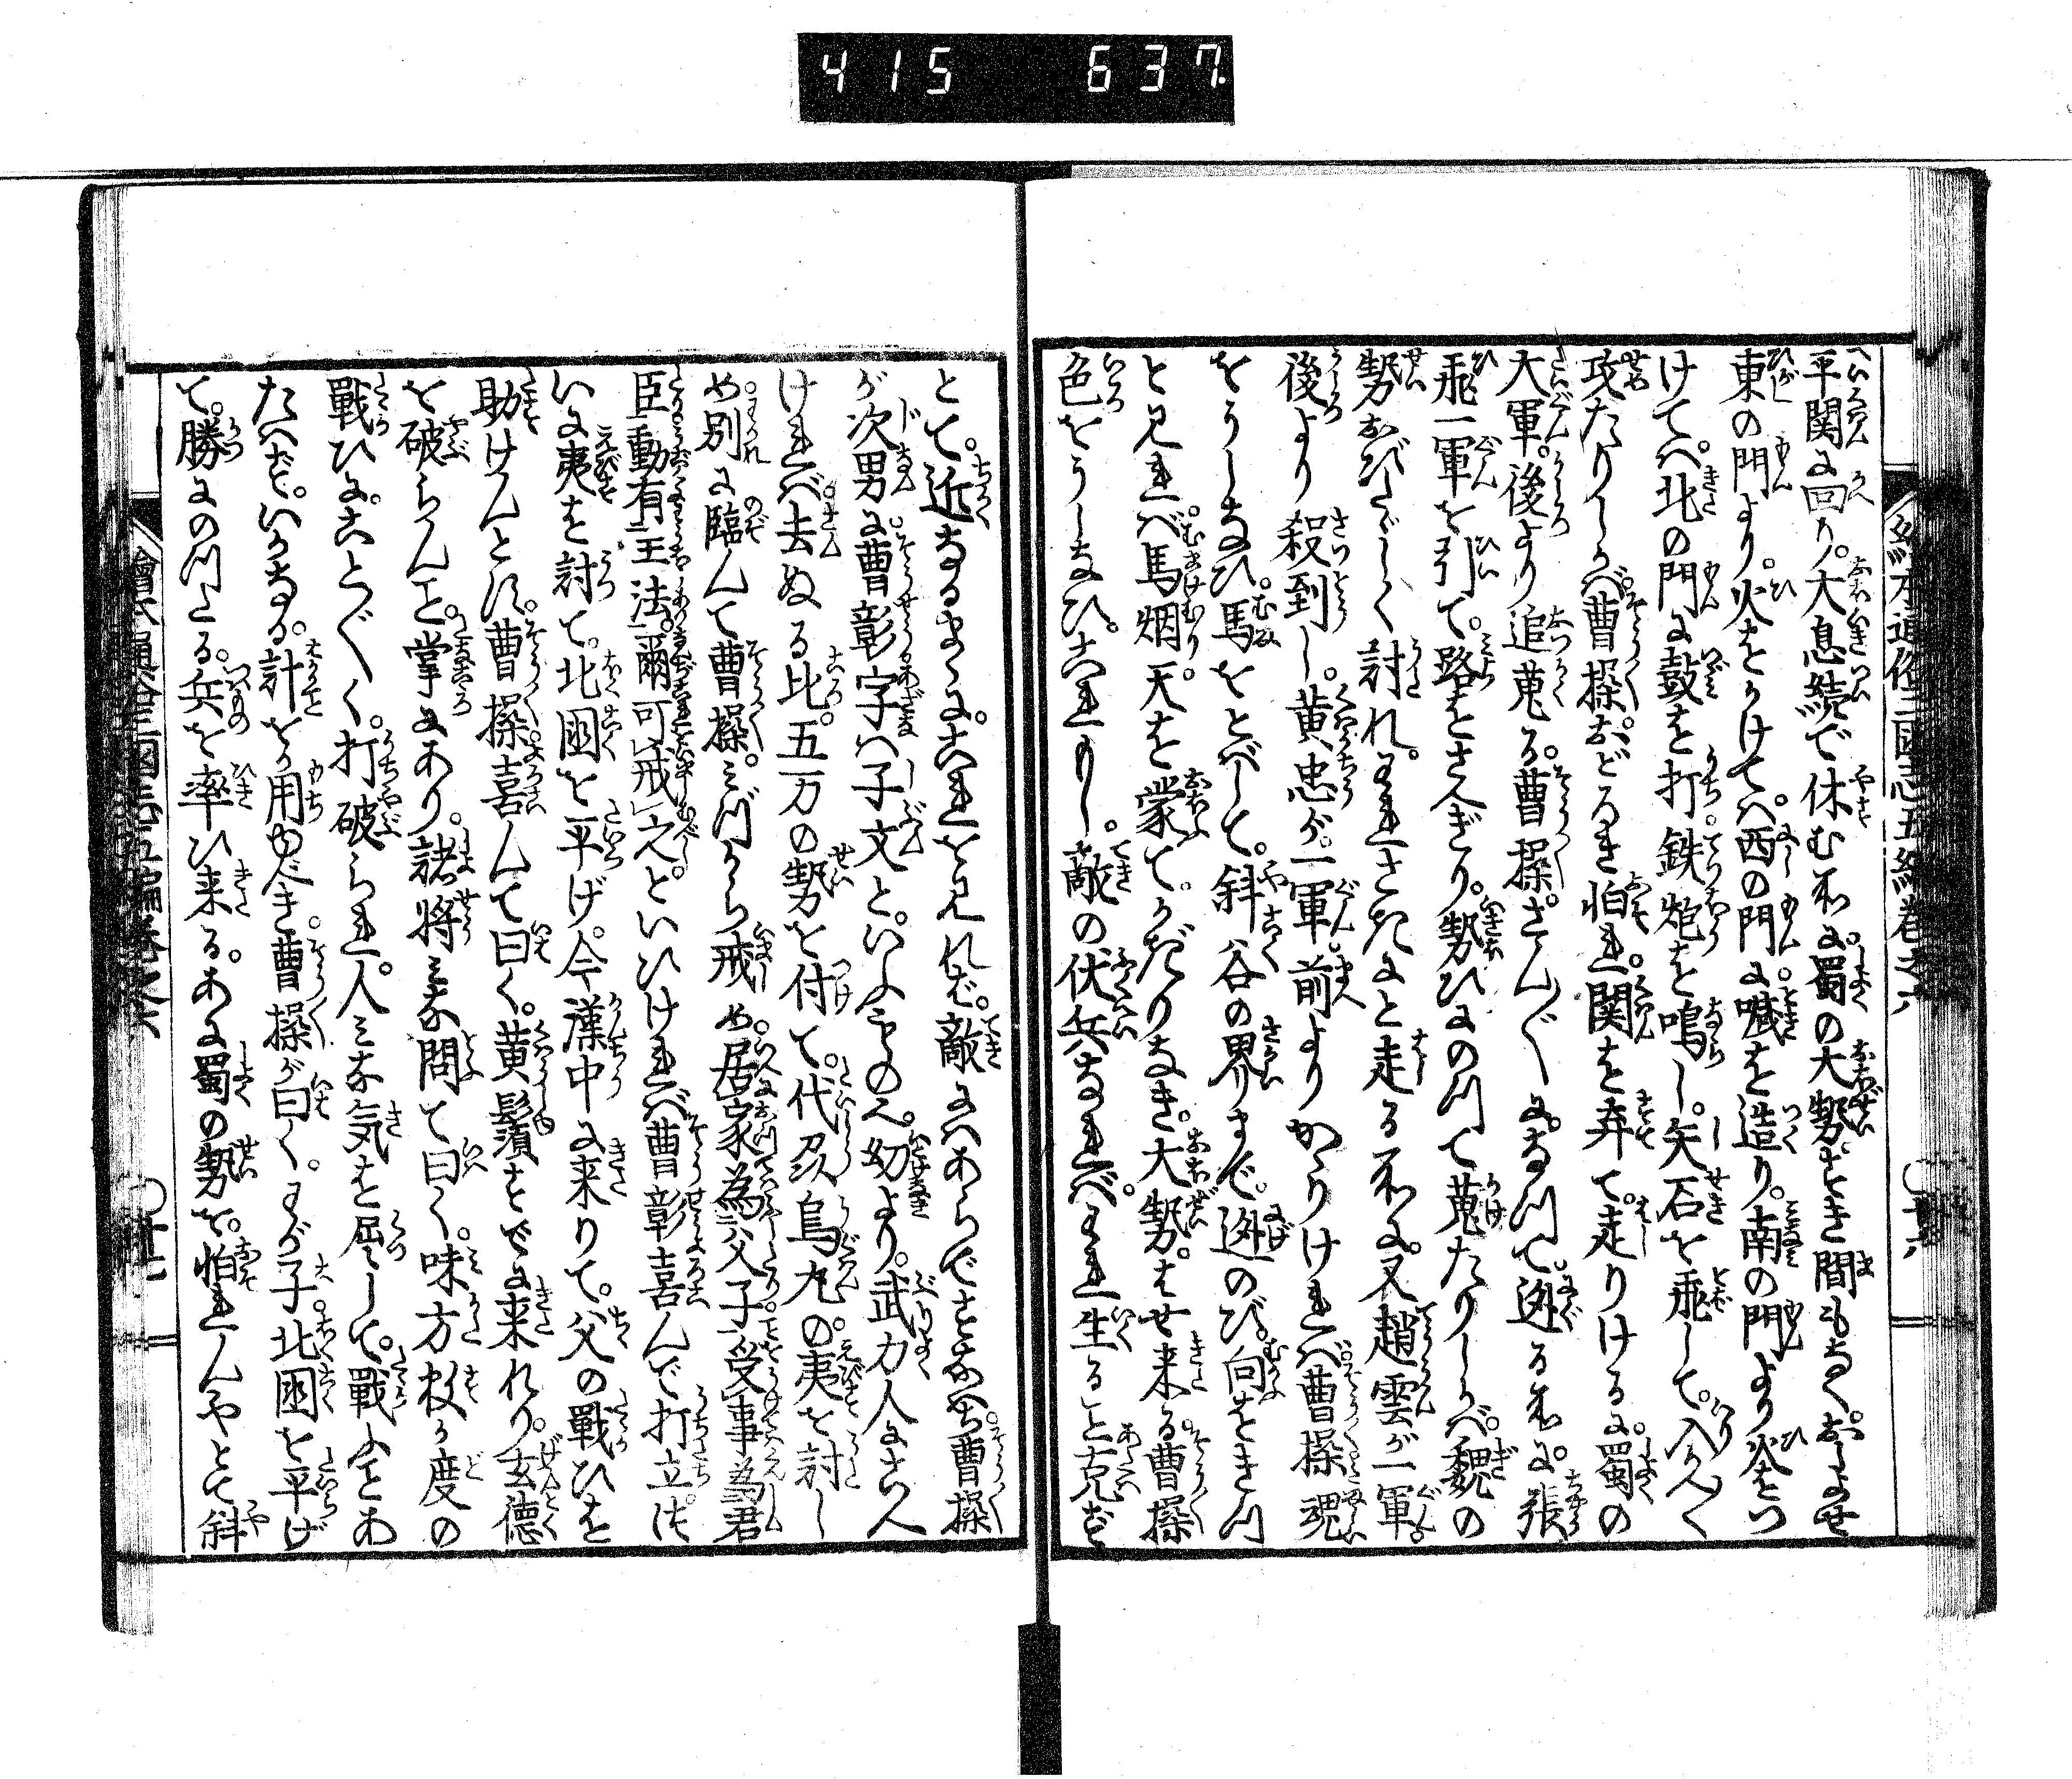 415 637
絵本通俗三國志五編巻之六
平関に回り。大息続で休む所に。蜀の大勢すき間もなく。おしよせ
東の門より。火をかけてハ。西の門に喊を造り。南の門より火をつ
けてハ。北の門に鼓を打。鉄炮を鳴し。矢石を飛して。入かへ〱
攻たりしかバ。曹操。おどろき怕れ。関を弃て。走りける。に蜀の
大軍。後より追蒐る。曹操。さん〲に。なつて。迯る所に。張
飛一軍を引て。路をさえぎり。勢ひにのつて蒐たりしかバ。魏の
勢おびたゞしく討れ。われさきにと走る所に。又趙雲が一軍
後より殺到し。黄忠が。一軍。前よりかゝりけれバ。曹操魂
をうしなひ。馬をとばして。斜谷の界りまで。迯のび。向をきつ
と見れバ。馬烟。天を蒙て。かぎりなき。大勢。はせ来る。曹操
色をうしなひ。これもし。敵の伏兵なれバ。われ生ること克ずと
とて。近なるまゝに。これを見れバ。敵にハあらですなハち曹操
が次男に。曹彰字ハ子文と。いふものハ。幼より。武力人にこへ
けれバ。去ぬる比。五万の勢を付て。代郡烏丸の。夷を討し
め。別に臨んて曹操。ミづから戒め。居家為父子。受事為君
臣。動有王法。爾可戒之。といひけれバ曹彰喜んで打立。つ
いに夷を討て。北國を平げ。今漢中に来りて。父の戦ひを
助けんとす。曹操喜んで曰く。黄鬚すでに来れり。玄徳
を破らんこと。掌にあり。諸将ミな問て曰く。味方数ヶ度の
戦ひに。こと〲く。打破られ。人ミな気を屈して。戦ふことあ
たハず。いかなる。計をか用ゆべき。曹操が曰く。わが子。北國を平げ
て。勝にのつたる。兵を率ひ来る。あに蜀の勢を。怕れんやとて斜
繪本通俗三國志五編巻之六